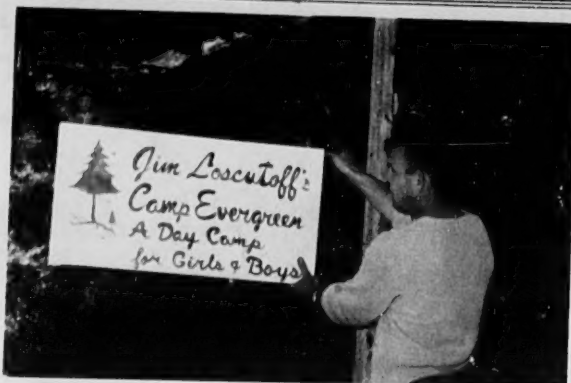 Jim Loscutoff's
Camp Evergreen
A Day Camp
for Girls & Boys